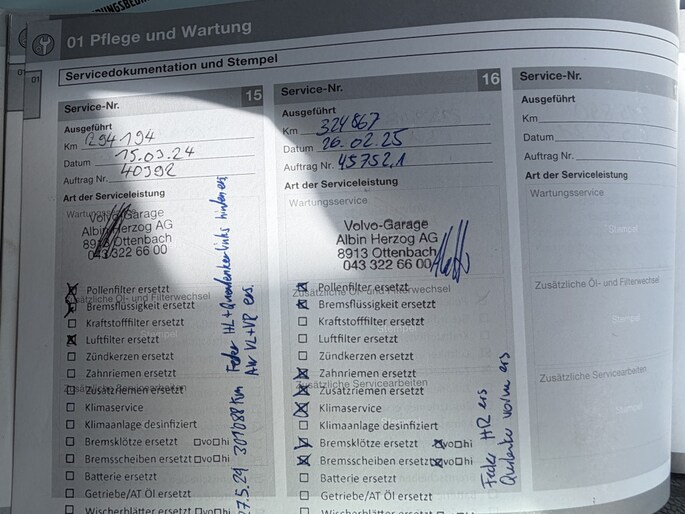 01 Pflege und Wartung
01
Servicedokumentation und Stempel
Service-Nr. 15
Ausgeführt
Km 294194
Datum 15.03.24
Auftrag Nr. 40392
Art der Serviceleistung
Wartungsservice
Volvo-Garage
Albin Herzog AG
8913 Ottenbach
043 322 66 00
Pollenfilter ersetzt
Zusätzliche Öl- und Filterwechsel
Bremsflüssigkeit ersetzt
Kraftstofffilter ersetzt
Stempel
Luftfilter ersetzt
Zündkerzen ersetzt
Zahnriemen ersetzt
Zusätzliche Servicearbeiten
Zusatzriemen ersetzt
Klimaservice
Klimaanlage desinfiziert
Bremsklötze ersetzt vo hi
Bremsscheiben ersetzt vo hi
Batterie ersetzt
Getriebe/AT Öl ersetzt
Wischerblätter ersetzt vo hi
27.5.24 301088 Km Feder HL + Querlenker links hinten ers,
VL+VR ers.
Service-Nr. 16
Ausgeführt
Km 324867
Datum 26.02.25
Auftrag Nr. 45752.1
Art der Serviceleistung
Wartungsservice
Volvo-Garage
Albin Herzog AG
8913 Ottenbach
043 322 66 00
Pollenfilter ersetzt
Zusätzliche Öl- und Filterwechsel
Bremsflüssigkeit ersetzt
Kraftstofffilter ersetzt
Stempel
Luftfilter ersetzt
Zündkerzen ersetzt
Zahnriemen ersetzt
Zusätzliche Servicearbeiten
Zusatzriemen ersetzt
Klimaservice
Klimaanlage desinfiziert
Bremsklötze ersetzt vo hi
Bremsscheiben ersetzt vo hi
Batterie ersetzt
Getriebe/AT Öl ersetzt
Wischerblätter ersetzt vo hi
Feder HR ers
Querlenker vorne ers
Service-Nr.
Ausgeführt
Km
Datum
Auftrag Nr.
Art der Serviceleistung
Wartungsservice
Stempel
Zusätzliche Öl- und Filterwechsel
Stempel
Zusätzliche Servicearbeiten
Stempel